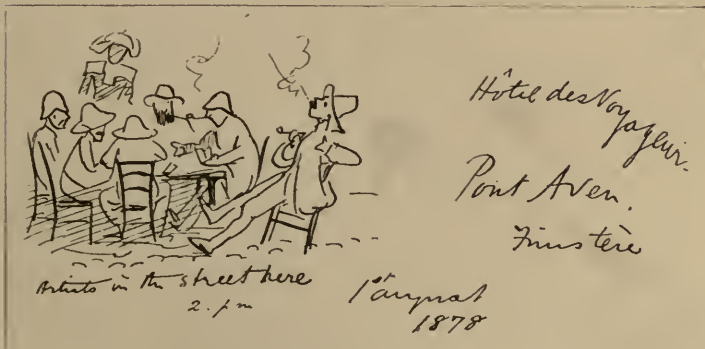 Hôtel des Voyageur.
Pont Aven.
Finistère
Artists in the street here
2. pm
1st August
1878